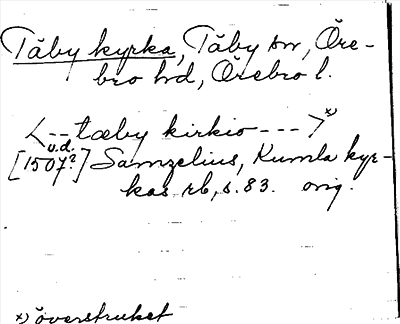 Täby kyrka, Täby sn, Öre-
bro hd, Örebro l.
<--tæby kirkio --->x)
u.d.
[1507?] Samzelius, Kumla kyr-
kas rb, s. 83. orig.
x) överstruket